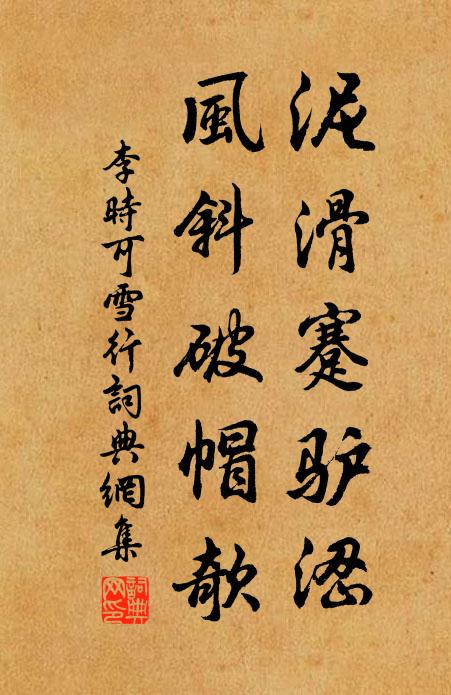 泥滑蹇驴涩
風斜破帽欹
李時可雪行詞典網集
詞典网印